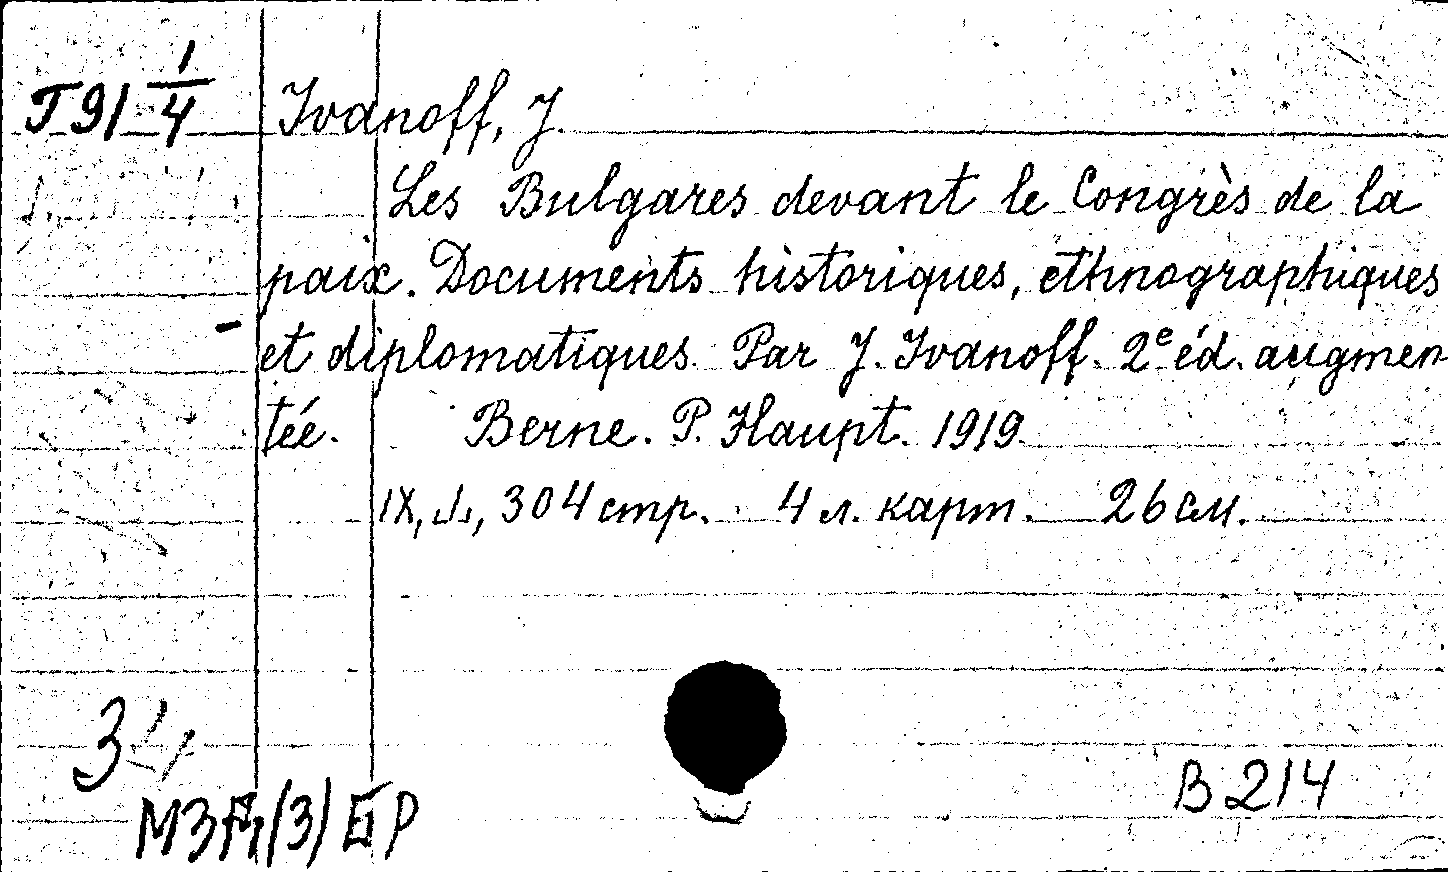 T91 1/4 Ivanoff, J.
Les Bulgares devant le Congrès de la
paix. Documents historiques, ethnographiques
et diplomatiques. Par J. Ivanoff. 2e éd. augmen
tée. Berne. P. Haupt. 1919
IX, 304 стр. 4 л. карт. 26 см.
3
В 214